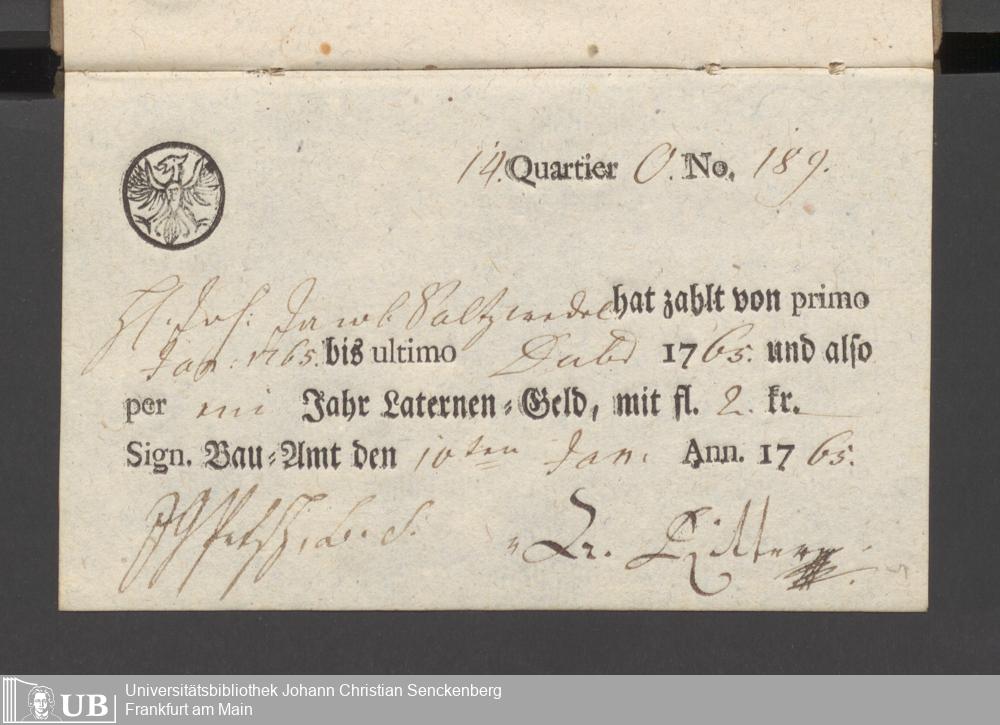 14. Quartier O. No. 189.
H. Joh: Jacob Saltzwedel hat zahlt von primo
Jan: 1765. bis ultimo 1765. und also
per ein Jahr Laternen-Geld, mit fl. 2. kr.
Sign. Bau-Amt den 10ten Jan: Ann. 1765.
Ritter
UB
Universitätsbibliothek Johann Christian Senckenberg
Frankfurt am Main